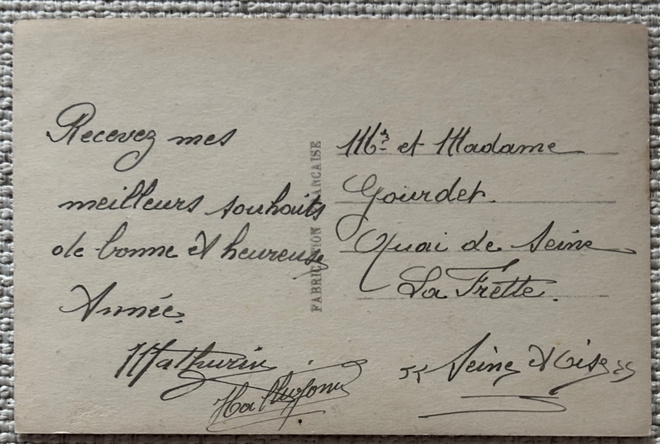 Recevez mes
meilleurs souhaits
de bonne et heureuse
Année.
Mathurin
FABRICATION FRANÇAISE
Mr et Madame
Gourdet.
Quai de Seine
La Frette.
Seine et Oise